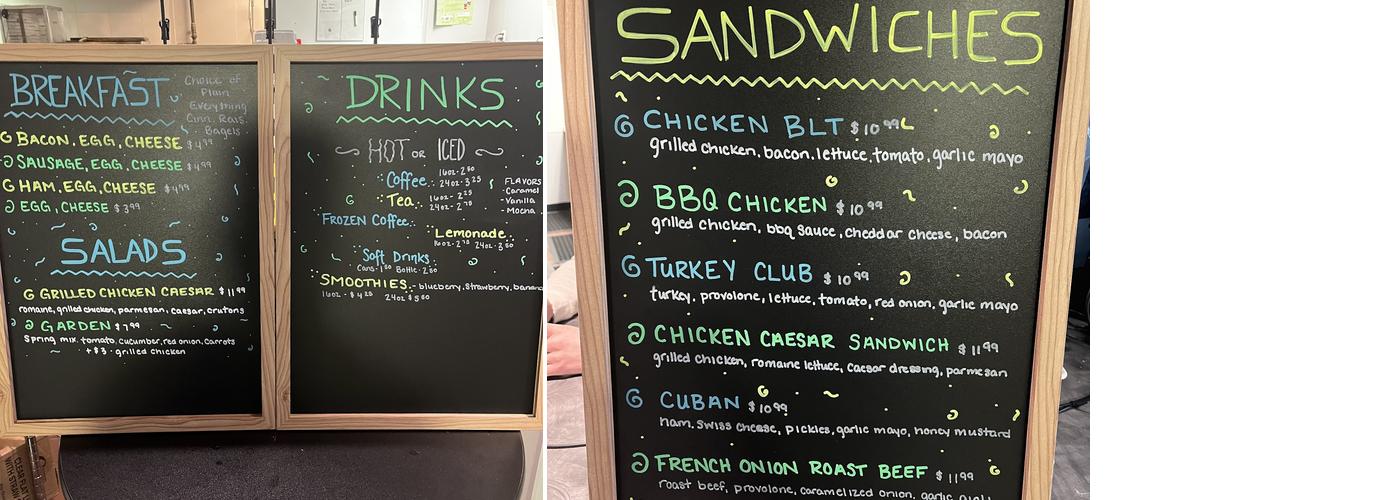 BREAKFAST
Choice of
Plain
Everything
Cinn. Rais.
Bagels
BACON, EGG, CHEESE $4.99
SAUSAGE, EGG, CHEESE $4.99
HAM, EGG, CHEESE $4.99
EGG, CHEESE $3.99
SALADS
GRILLED CHICKEN CAESAR $11.99
romaine, grilled chicken, parmesan, caesar, crutons
GARDEN $7.99
Spring mix, tomato, cucumber, red onion, carrots
+$3 - grilled chicken
DRINKS
HOT OR ICED
Coffee 16oz - 2.50
24oz - 3.25
Tea 16oz - 2.25
24oz - 2.70
FLAVORS
- Caramel
- Vanilla
- Mocha
FROZEN Coffee
Lemonade
16oz - 2.75 24oz 3.50
Soft Drinks
Cans - 1.50 Bottle - 2.50
SMOOTHIES - blueberry, strawberry, banana
16oz - $4.25 24oz $5.50
SANDWICHES
CHICKEN BLT $10.99
grilled chicken, bacon, lettuce, tomato, garlic mayo
BBQ CHICKEN $10.99
grilled chicken, bbq sauce, cheddar cheese, bacon
TURKEY CLUB $10.99
turkey, provolone, lettuce, tomato, red onion, garlic mayo
CHICKEN CAESAR SANDWICH $11.99
grilled chicken, romaine lettuce, caesar dressing, parmesan
CUBAN $10.99
ham, swiss cheese, pickles, garlic mayo, honey mustard
FRENCH ONION ROAST BEEF $11.99
roast beef, provolone, caramelized onion, garlic